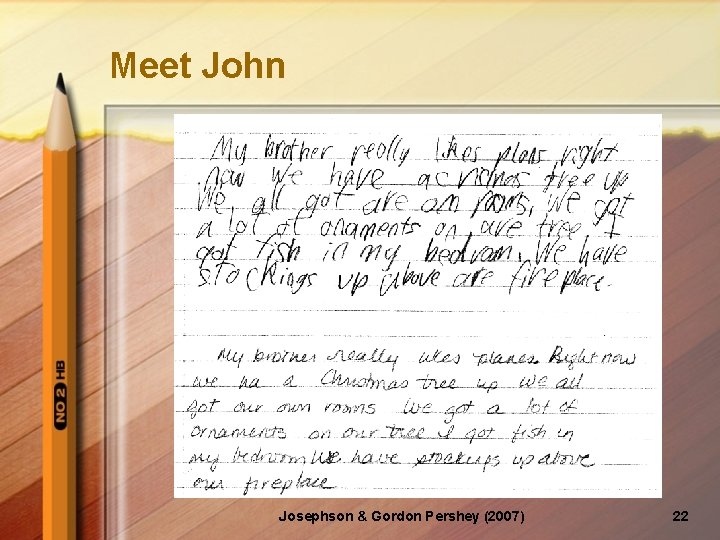 Meet John
My brother really likes plans right
now we have a crismas tree up
We all got are own rooms, we got
a lot of onaments on are tree I
got fish in my bedroom. We have
stockings up above are fireplace.
My brother really likes planes. Right now
we ha a Christmas tree up we all
got our own rooms We got a lot of
ornaments on our tree I got fish in
my bedroom We have up above
our fireplace
NO 2 HB
Josephson & Gordon Pershey (2007)
22